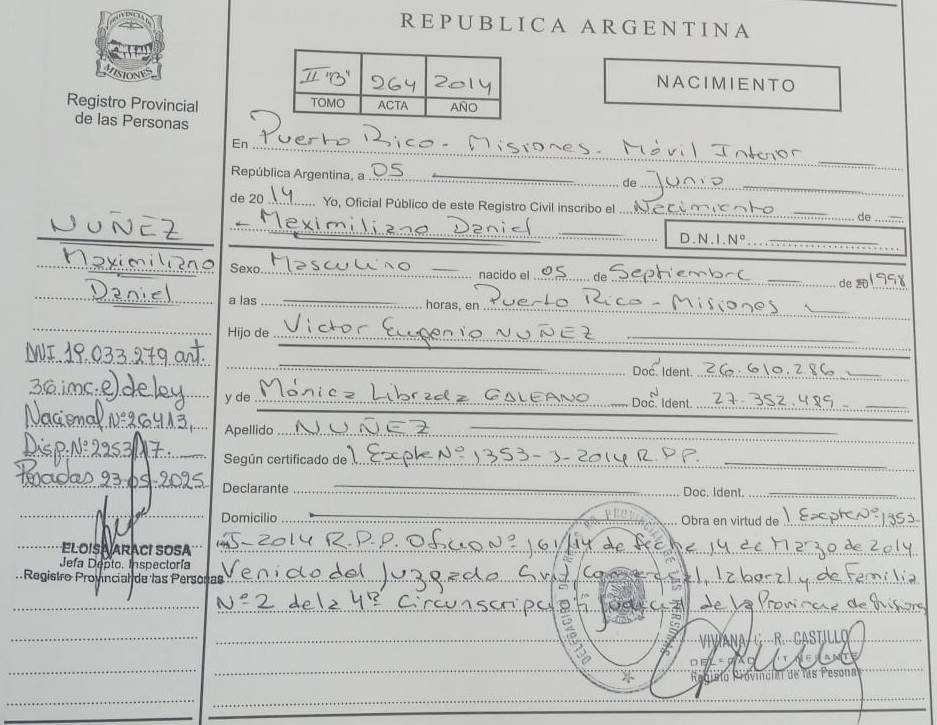 PROVINCIA DE
MISIONES
Registro Provincial
de las Personas
NUÑEZ
Maximiliano
Daniel
DNI.19.033.279 art.
36 inc. e) de ley
Nacional Nº 26413,
Disp. Nº 2253/17.
Posadas 23-05-2025
ELOISA ARACI SOSA
Jefa Depto. Inspectoría
Registro Provincial de las Personas
REPUBLICA ARGENTINA
II "B" 264 2014
TOMO ACTA AÑO
NACIMIENTO
En Puerto Rico - Misiones - Móvil Interior
República Argentina, a 05 de Junio
de 2014 Yo, Oficial Público de este Registro Civil inscribo el Nacimiento de
Maximiliano Daniel D.N.I.Nº
Sexo Masculino nacido el 05 de Septiembre de 1998
a las horas, en Puerto Rico - Misiones
Hijo de Victor Eugenio NUÑEZ
Doc. Ident. 26.610.286
y de Mónica Librada GALEANO Doc. Ident. 27.352.489
Apellido NUÑEZ
Según certificado de Expte Nº 1353-J-2014 R.P.P.
Declarante Doc. Ident.
Domicilio Obra en virtud de Expte Nº 1353-
J-2014 R.P.P. Oficio Nº 161/14 de fecha 14 de Marzo de 2014
Venido del Juzgado Civil, Comercial, laboral y de Familia
Nº 2 de la 4ª Circunscripción Judicial de la Provincia de Misiones
VIVIANA R. CASTILLO
Registro Provincial de las Personas